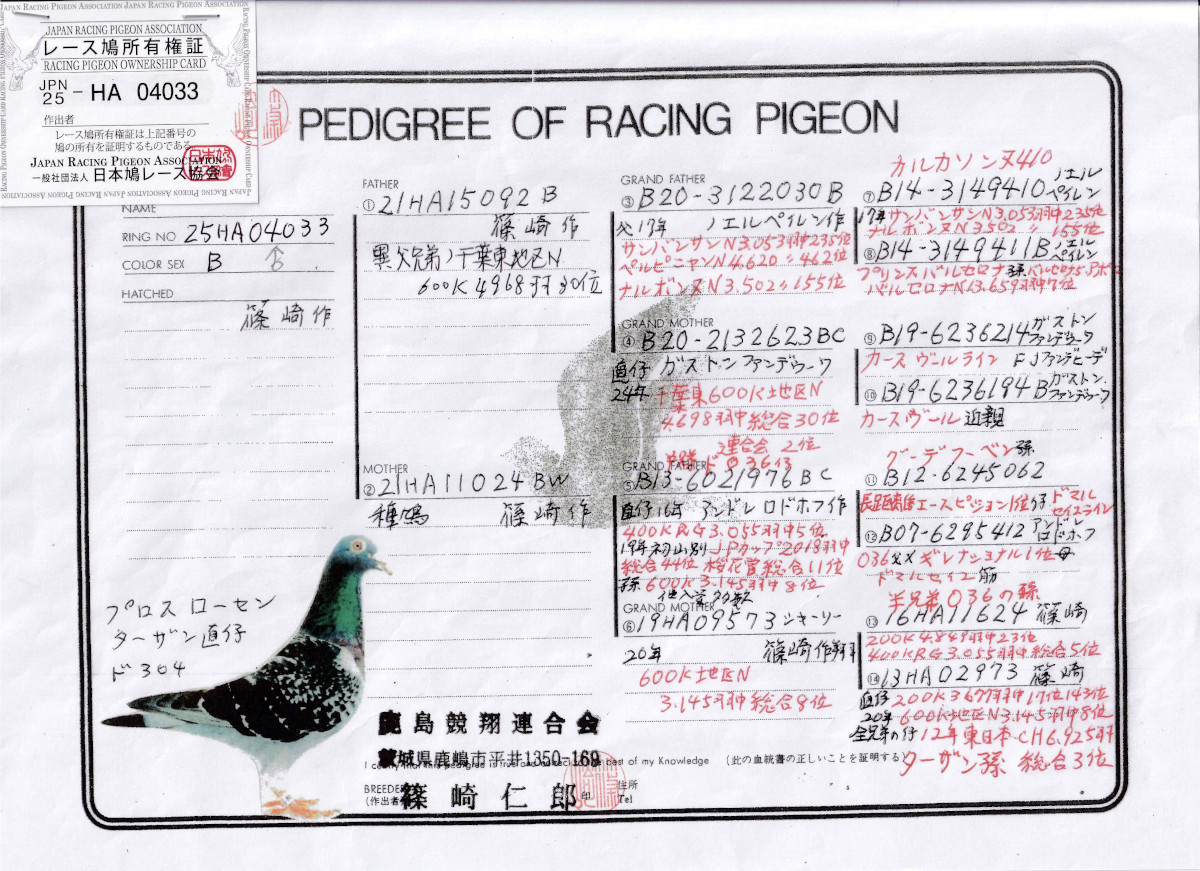 JAPAN RACING PIGEON ASSOCIATION
レース鳩所有権証
RACING PIGEON OWNERSHIP CARD
JPN
25 - HA 04033
作出者
レース鳩所有権証は上記番号の
鳩の所有を証明するものである。
JAPAN RACING PIGEON ASSOCIATION
一般社団法人 日本鳩レース協会
PEDIGREE OF RACING PIGEON
NAME
RING NO 25HA04033
COLOR SEX B ♂
HATCHED
篠崎作
FATHER
① 21HA15092 B
篠崎作
異父兄弟ノ千葉東地区N
600K 4968羽 30位
MOTHER
② 21HA11024 BW
種鳩 篠崎作
GRAND FATHER
③ B20-3122030 B
17年 ノエルペイレン作
サンバンサンN3.053羽中235位
ペルピニャンN4.620〃462位
ナルボンヌN3.502〃155位
GRAND MOTHER
④ B20-2132623 BC
直仔 ガストンファンデウーワ
24年 千葉東600K地区N
4.698羽中総合30位
連合会 2位
GRAND FATHER
⑤ B13-6021976 BC
直仔16年 アンドレ ロドホフ作
400KRG3.055羽中5位
19年 JPカップ2018羽中
総合44位 桜花賞総合11位
孫 600K3.145羽中8位
他入賞多数
GRAND MOTHER
⑥ 19HA09573 シキーリー
20年 篠崎作翔
600K地区N
3.145羽中総合8位
カルカソンヌ410
⑦ B14-3149410 ノエルペイレン
17年サンバンサンN3.053羽中235位
ナルボンヌN3.502〃155位
⑧ B14-3149411B ノエルペイレン
プリンスバルセロナ孫
バルセロナN13.659羽中7位
⑨ B19-6236214 ガストンファンデウーワ
カースヴールライン
⑩ B19-6236184 B ガストンファンデウーワ
カースヴール近親
グーデフーベン孫
⑪ B12-6245062
長距離エースピジョン1位仔 ドマルセイユライン
⑫ B07-6295412 アンドレロドホフ
ナショナル1位
ドマルセイユ筋
半兄弟036の孫
⑬ 16HA11624 篠崎
200K4.849羽中23位
400KRG3.055羽中総合5位
⑭ 13HA02973 篠崎
直仔200K3677羽中17位143位
20年600K地区N3.145羽中8位
全兄弟の仔12年東日本CH6.925羽
ターザン孫 総合3位
プロスローセン
ターザン直仔
ド304
鹿島競翔連合会
茨城県鹿嶋市平井1350-169
best of my Knowledge (此の血統書の正しいことを証明する)
BREEDER
(作出者)
篠崎仁郎 印
住所
Tel